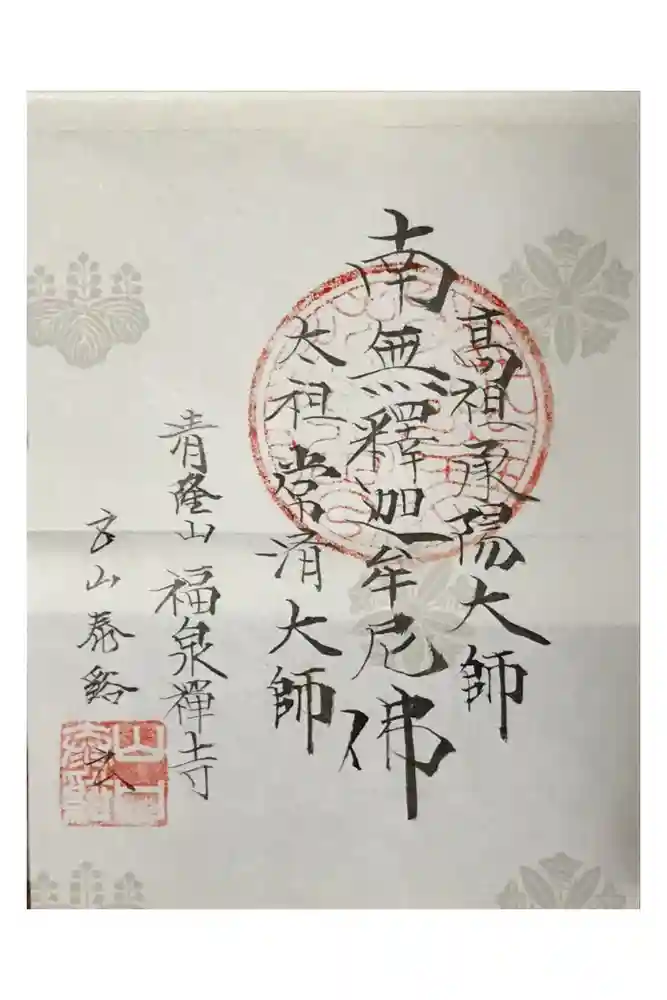 高祖承陽大師
南無釋迦牟尼佛
太祖常濟大師
青隆山 福泉禅寺
山泰谿